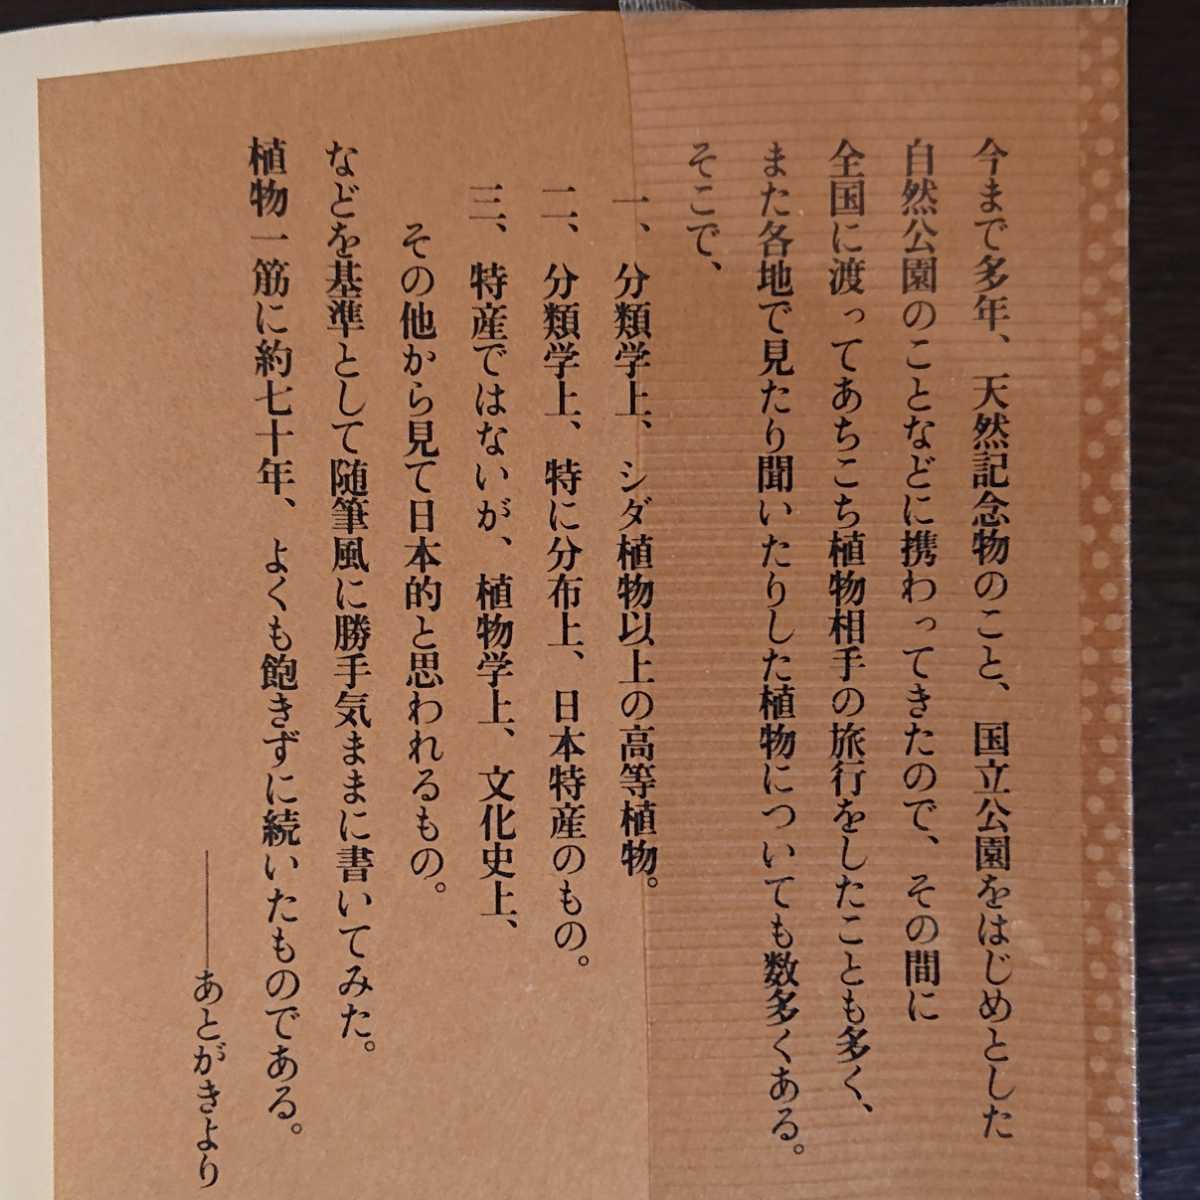 今まで多年、天然記念物のこと、国立公園をはじめとした
自然公園のことなどに携わってきたので、その間に
全国に渡ってあちこち植物相手の旅行をしたことも多く、
また各地で見たり聞いたりした植物についても数多くある。
そこで、
一、分類学上、シダ植物以上の高等植物。
二、分類学上、特に分布上、日本特産のもの。
三、特産ではないが、植物学上、文化史上、
その他から見て日本的と思われるもの。
などを基準として随筆風に勝手気ままに書いてみた。
植物一筋に約七十年、よくも飽きずに続いたものである。
――あとがきより